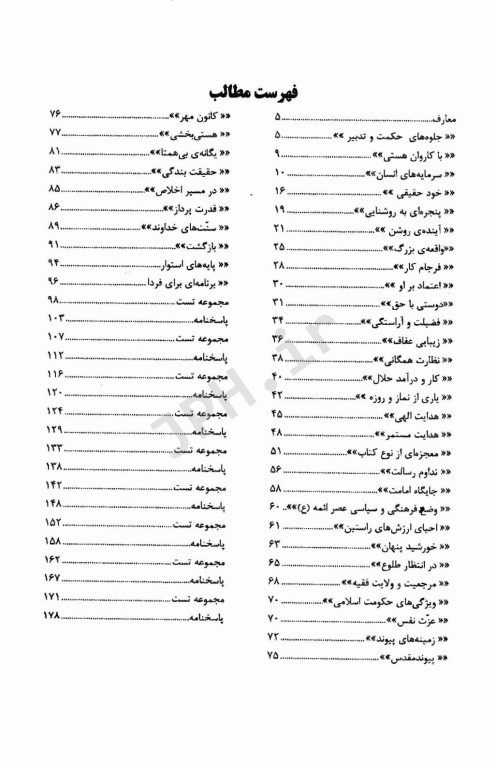 فهرست مطالب
معارف ..... ۵
«« جلوه‌های حکمت و تدبیر »» ..... ۵
«« با کاروان هستی»» ..... ۹
«« سرمایه‌های انسان»» ..... ۱۰
«« خود حقیقی »» ..... ۱۶
«« پنجره‌ای به روشنایی»» ..... ۱۹
«« آینده‌ی روشن »» ..... ۲۱
««واقعه‌ی بزرگ»» ..... ۲۵
«« فرجام کار»» ..... ۲۸
«« اعتماد بر او »» ..... ۳۰
««دوستی با حق»» ..... ۳۱
«« فضیلت و آراستگی»» ..... ۳۴
«« زیبایی عفاف»» ..... ۳۶
«« نظارت همگانی»» ..... ۳۸
«« کار و درآمد حلال»» ..... ۴۰
«« یاری از نماز و روزه »» ..... ۴۲
«« هدایت الهی»» ..... ۴۵
«« هدایت مستمر»» ..... ۴۸
«« معجزه‌ای از نوع کتاب»» ..... ۵۱
«« تداوم رسالت»» ..... ۵۶
«« جایگاه امامت»» ..... ۵۸
«« وضع فرهنگی و سیاسی عصر ائمه (ع)»» .. ۶۰
«« احیای ارزش‌های راستین»» ..... ۶۱
«« خورشید پنهان»» ..... ۶۳
«« در انتظار طلوع»» ..... ۶۵
«« مرجعیت و ولایت فقیه»» ..... ۶۸
«« ویژگی‌های حکومت اسلامی»» ..... ۷۰
«« عزّت نفس»» ..... ۷۰
«« زمینه‌های پیوند»» ..... ۷۲
«« پیوندمقدس»» ..... ۷۵
«« کانون مهر»» ..... ۷۶
«« هستی‌بخشی»» ..... ۷۷
«« یگانه‌ی بی‌همتا»» ..... ۸۱
«« حقیقت بندگی»» ..... ۸۳
«« در مسیر اخلاص»» ..... ۸۵
«« قدرت پرداز»» ..... ۸۶
«« سنّت‌های خداوند»» ..... ۸۹
«« بازگشت»» ..... ۹۱
«« پایه‌های استوار ..... ۹۴
«« برنامه‌ای برای فردا ..... ۹۶
مجموعه تست ..... ۹۸
پاسخنامه ..... ۱۰۳
مجموعه تست ..... ۱۰۷
پاسخنامه ..... ۱۱۲
مجموعه تست ..... ۱۱۶
پاسخنامه ..... ۱۲۰
مجموعه تست ..... ۱۲۴
پاسخنامه ..... ۱۲۹
مجموعه تست ..... ۱۳۳
پاسخنامه ..... ۱۳۸
مجموعه تست ..... ۱۴۲
پاسخنامه ..... ۱۴۸
مجموعه تست ..... ۱۵۲
پاسخنامه ..... ۱۵۸
مجموعه تست ..... ۱۶۲
پاسخنامه ..... ۱۶۷
مجموعه تست ..... ۱۷۱
پاسخنامه ..... ۱۷۸